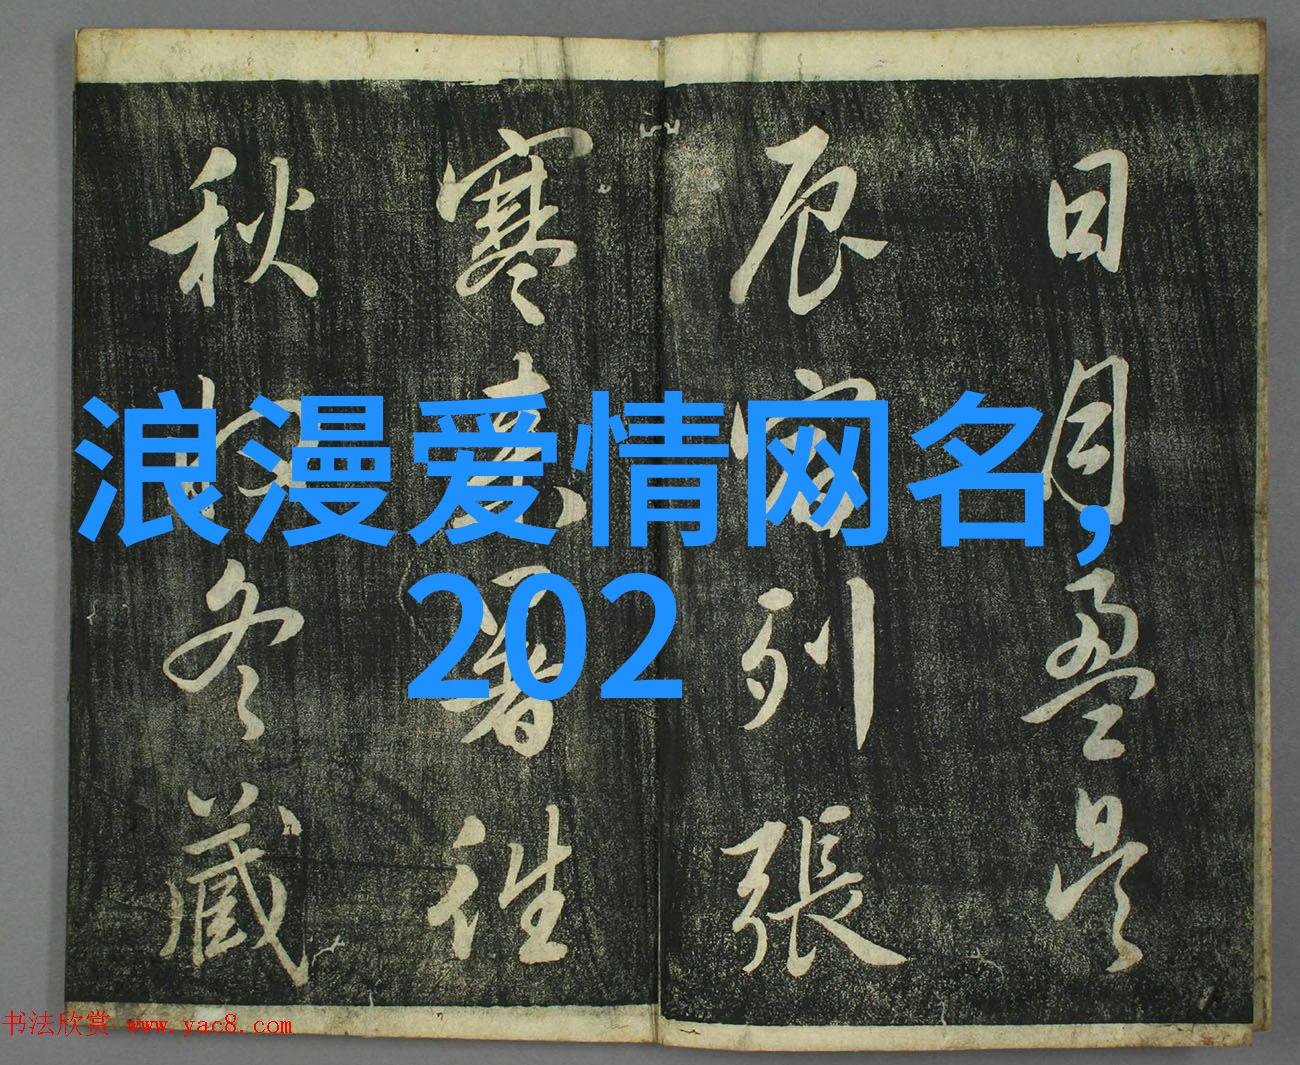 日月盈昃
辰宿列張
寒來暑往
秋收冬藏
浪漫爱情网名,
202
书法欣赏 www.yac8.com